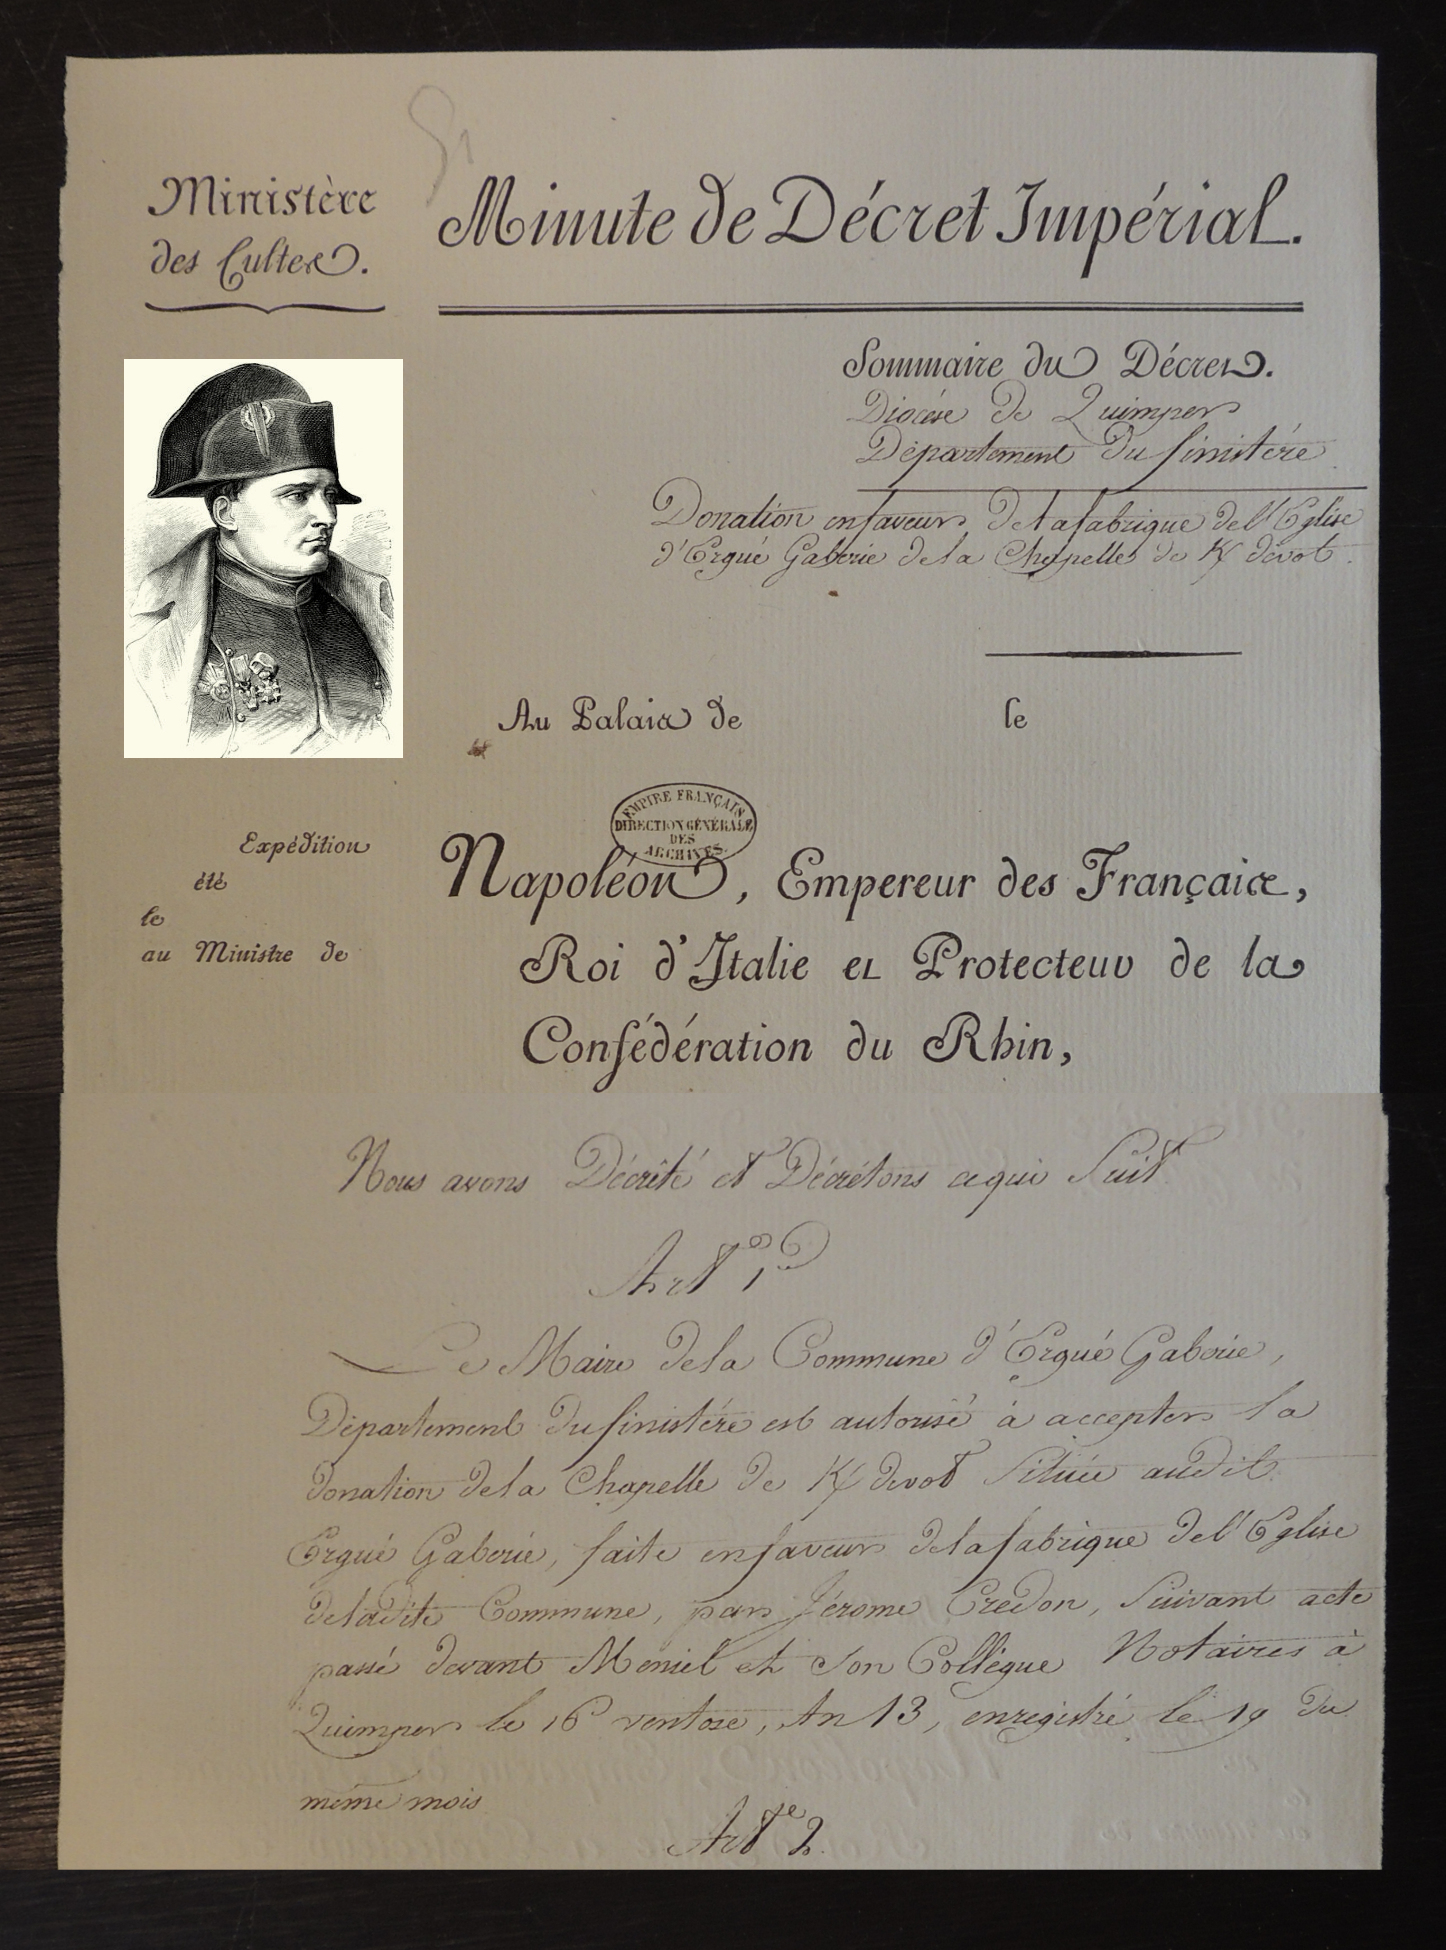 Ministère
des Cultes.
Minute de Décret Impérial.
Sommaire du Décret.
Diocése de Quimper
Département du finistére
Donation en faveur de la fabrique de l'Eglise
d'Ergué Gaberic de la Chapelle de K/ devot.
Au Palais de
le
EMPIRE FRANÇAIS
DIRECTION GÉNÉRALE
DES
ARCHIVES
Expédition
été
le
au Ministre de
Napoléon, Empereur des Français,
Roi d'Italie et Protecteur de la
Confédération du Rhin,
Nous avons Décrété et Décrétons ce qui Suit
Art 1er
Le Maire de la Commune d'Ergué Gaberic,
Département du finistére est autorisé à accepter la
donation de la Chapelle de K/ devot Située audit
Ergué Gaberic, faite en faveur de la fabrique de l'Eglise
de ladite Commune, par Jérome Credon, Suivant acte
passé devant et son Collègue Notaires à
Quimper le 16 ventose, An 13, enregistré le 19 du
même mois
Art 2e